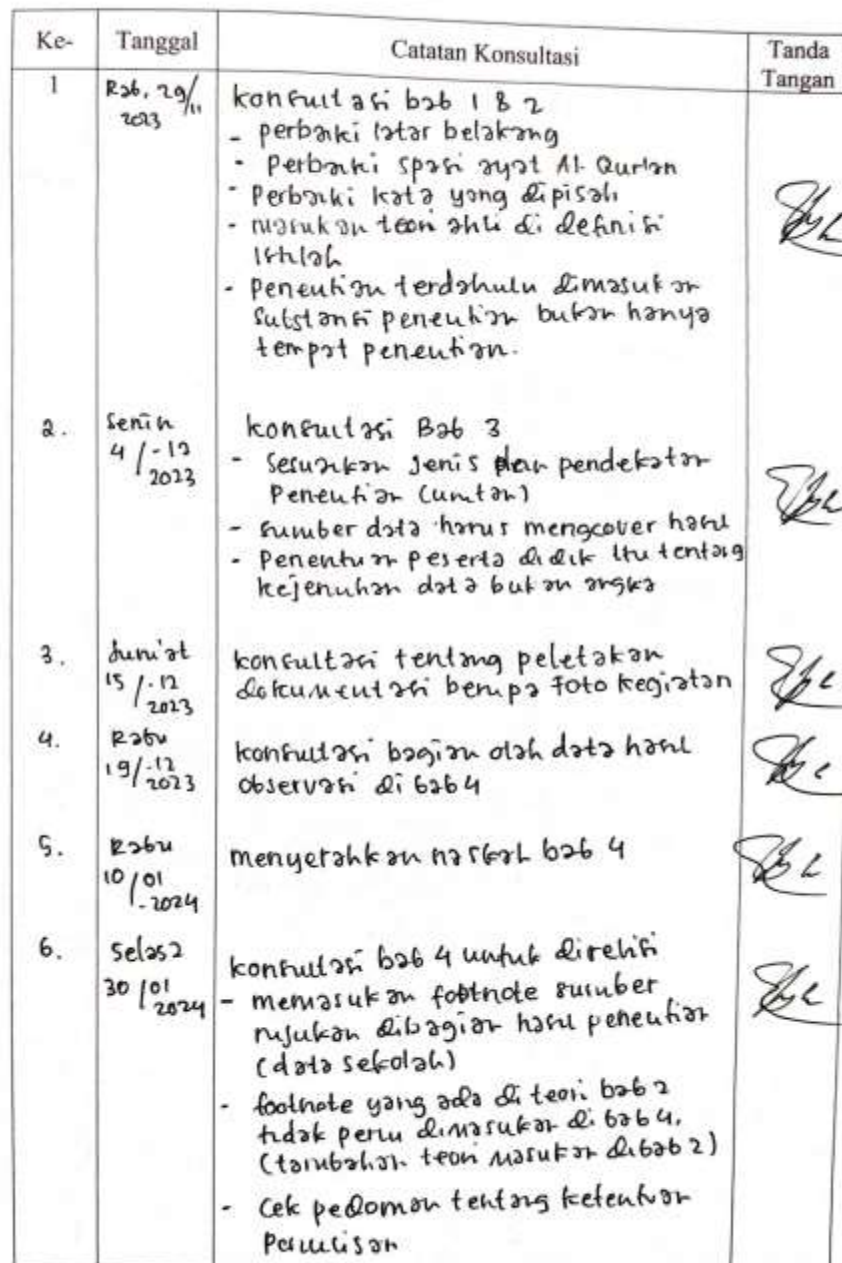 Ke- Tanggal Catatan Konsultasi Tanda Tangan
1 Rab, 29/11 2023 konsultasi bab 1 & 2
- perbaiki latar belakang
- Perbaiki spasi ayat Al-Qur'an
- Perbaiki kata yang dipisah
- masukan teori ahli di definisi
istilah
- Penelitian terdahulu dimasukan
substansi penelitian bukan hanya
tempat penelitian.
2. Senin 4/-12 2023 konsultasi Bab 3
- Sesuaikan Jenis dan pendekatan
Penelitian (urutan)
- sumber data harus mengcover hasil
- Penentuan peserta didik itu tentang
kejenuhan data bukan angka
3. Jum'at 15/-12 2023 konsultasi tentang peletakan
dokumentasi berupa foto kegiatan
4. Rabu 19/-12 2023 konsultasi bagian olah data hasil
observasi di bab 4
5. Rabu 10/01 -2024 menyerahkan naskah bab 4
6. Selasa 30/01 2024 konsultasi bab 4 untuk direvisi
- memasukan footnote sumber
rujukan dibagian hasil penelitian
(data sekolah)
- footnote yang ada di teori bab 2
tidak perlu dimasukan di bab 4.
(tambahan teori masukan dibab 2)
- Cek pedoman tentang ketentuan
Penulisan